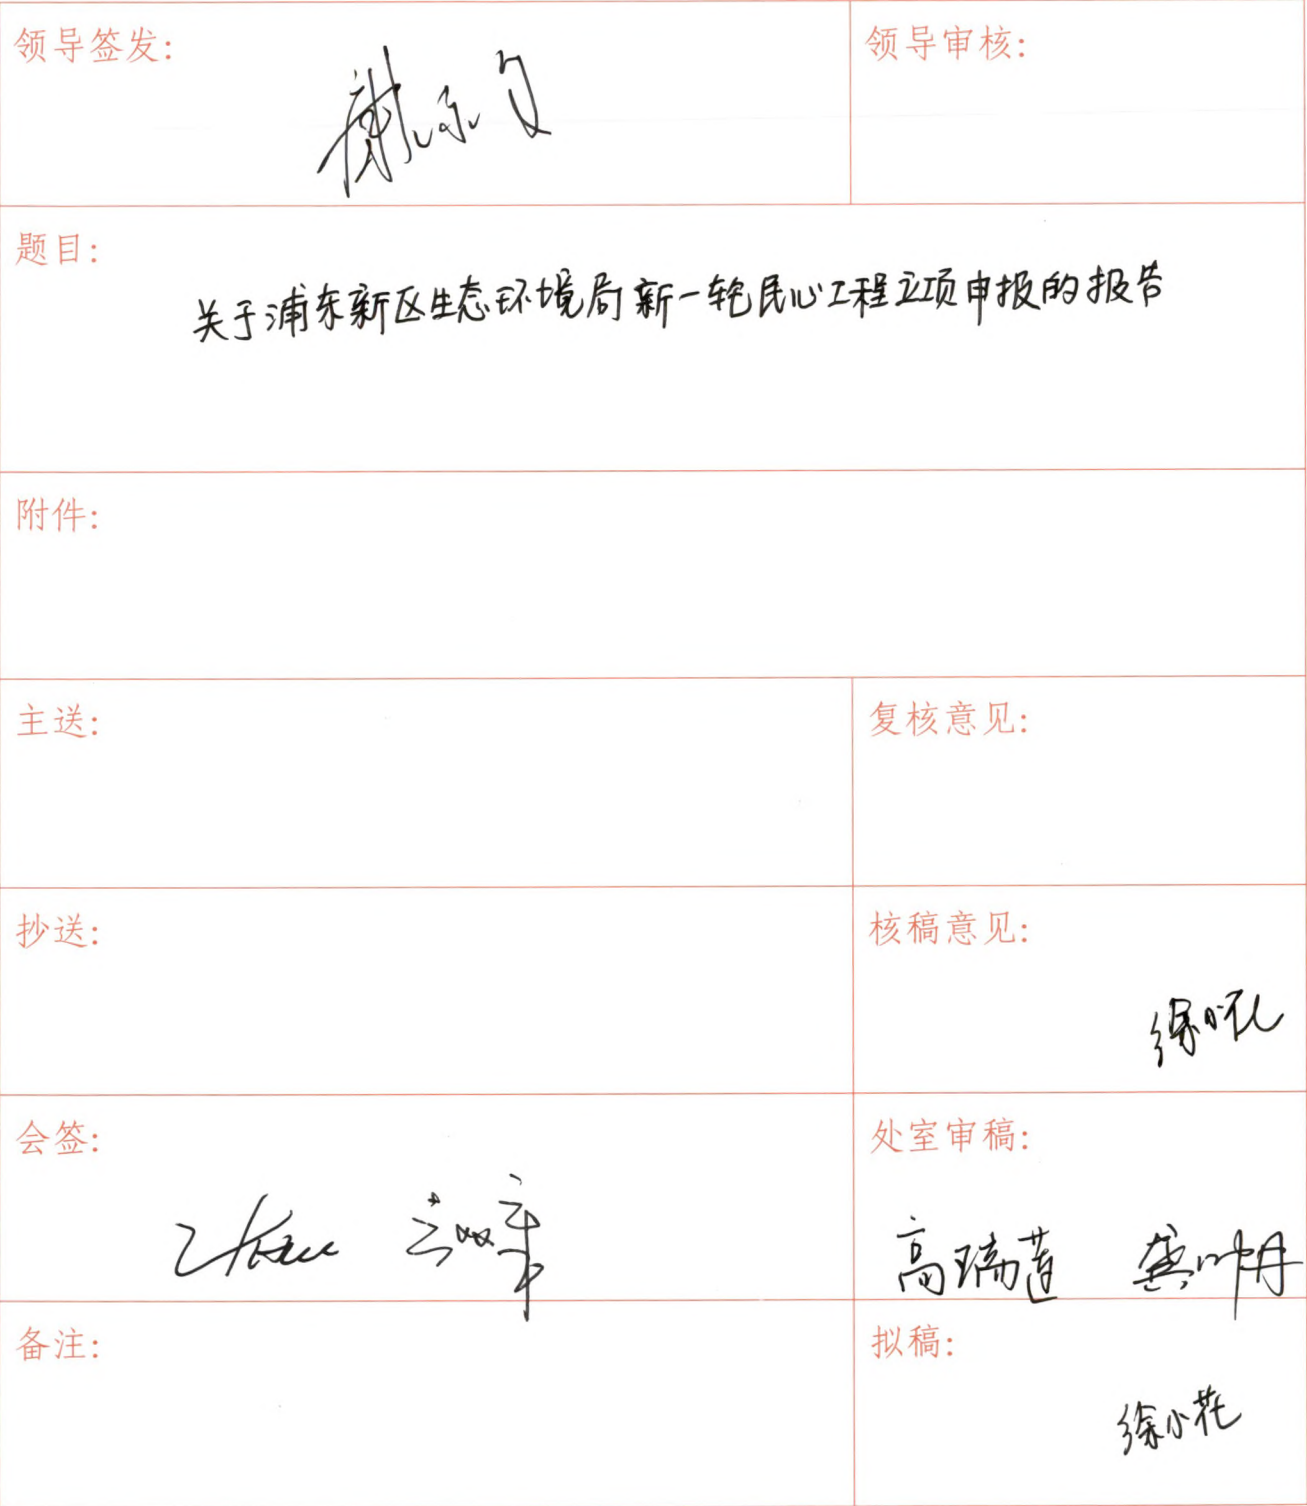 领导签发:
领导审核:
题目:
关于浦东新区生态环境局新一轮民心工程立项申报的报告
附件:
主送:
复核意见:
抄送:
核稿意见:
会签:
处室审稿:
高瑞莲
备注:
拟稿:
徐小花